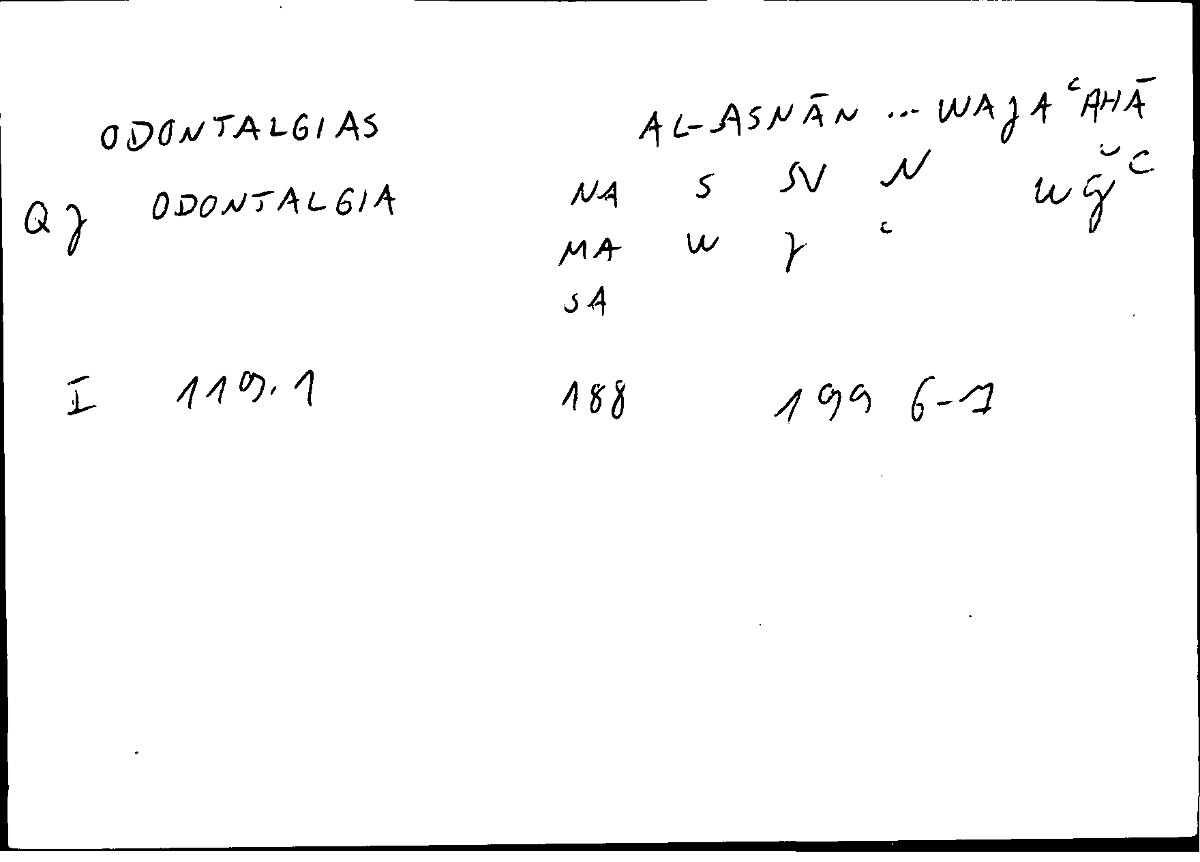 ODONTALGIAS AL-ASNĀN ... WAJAʿAHĀ
QJ ODONTALGIA NA S SN N wǧʿ
MA W J ʿ
SA
I 119.1 188 199 6-7